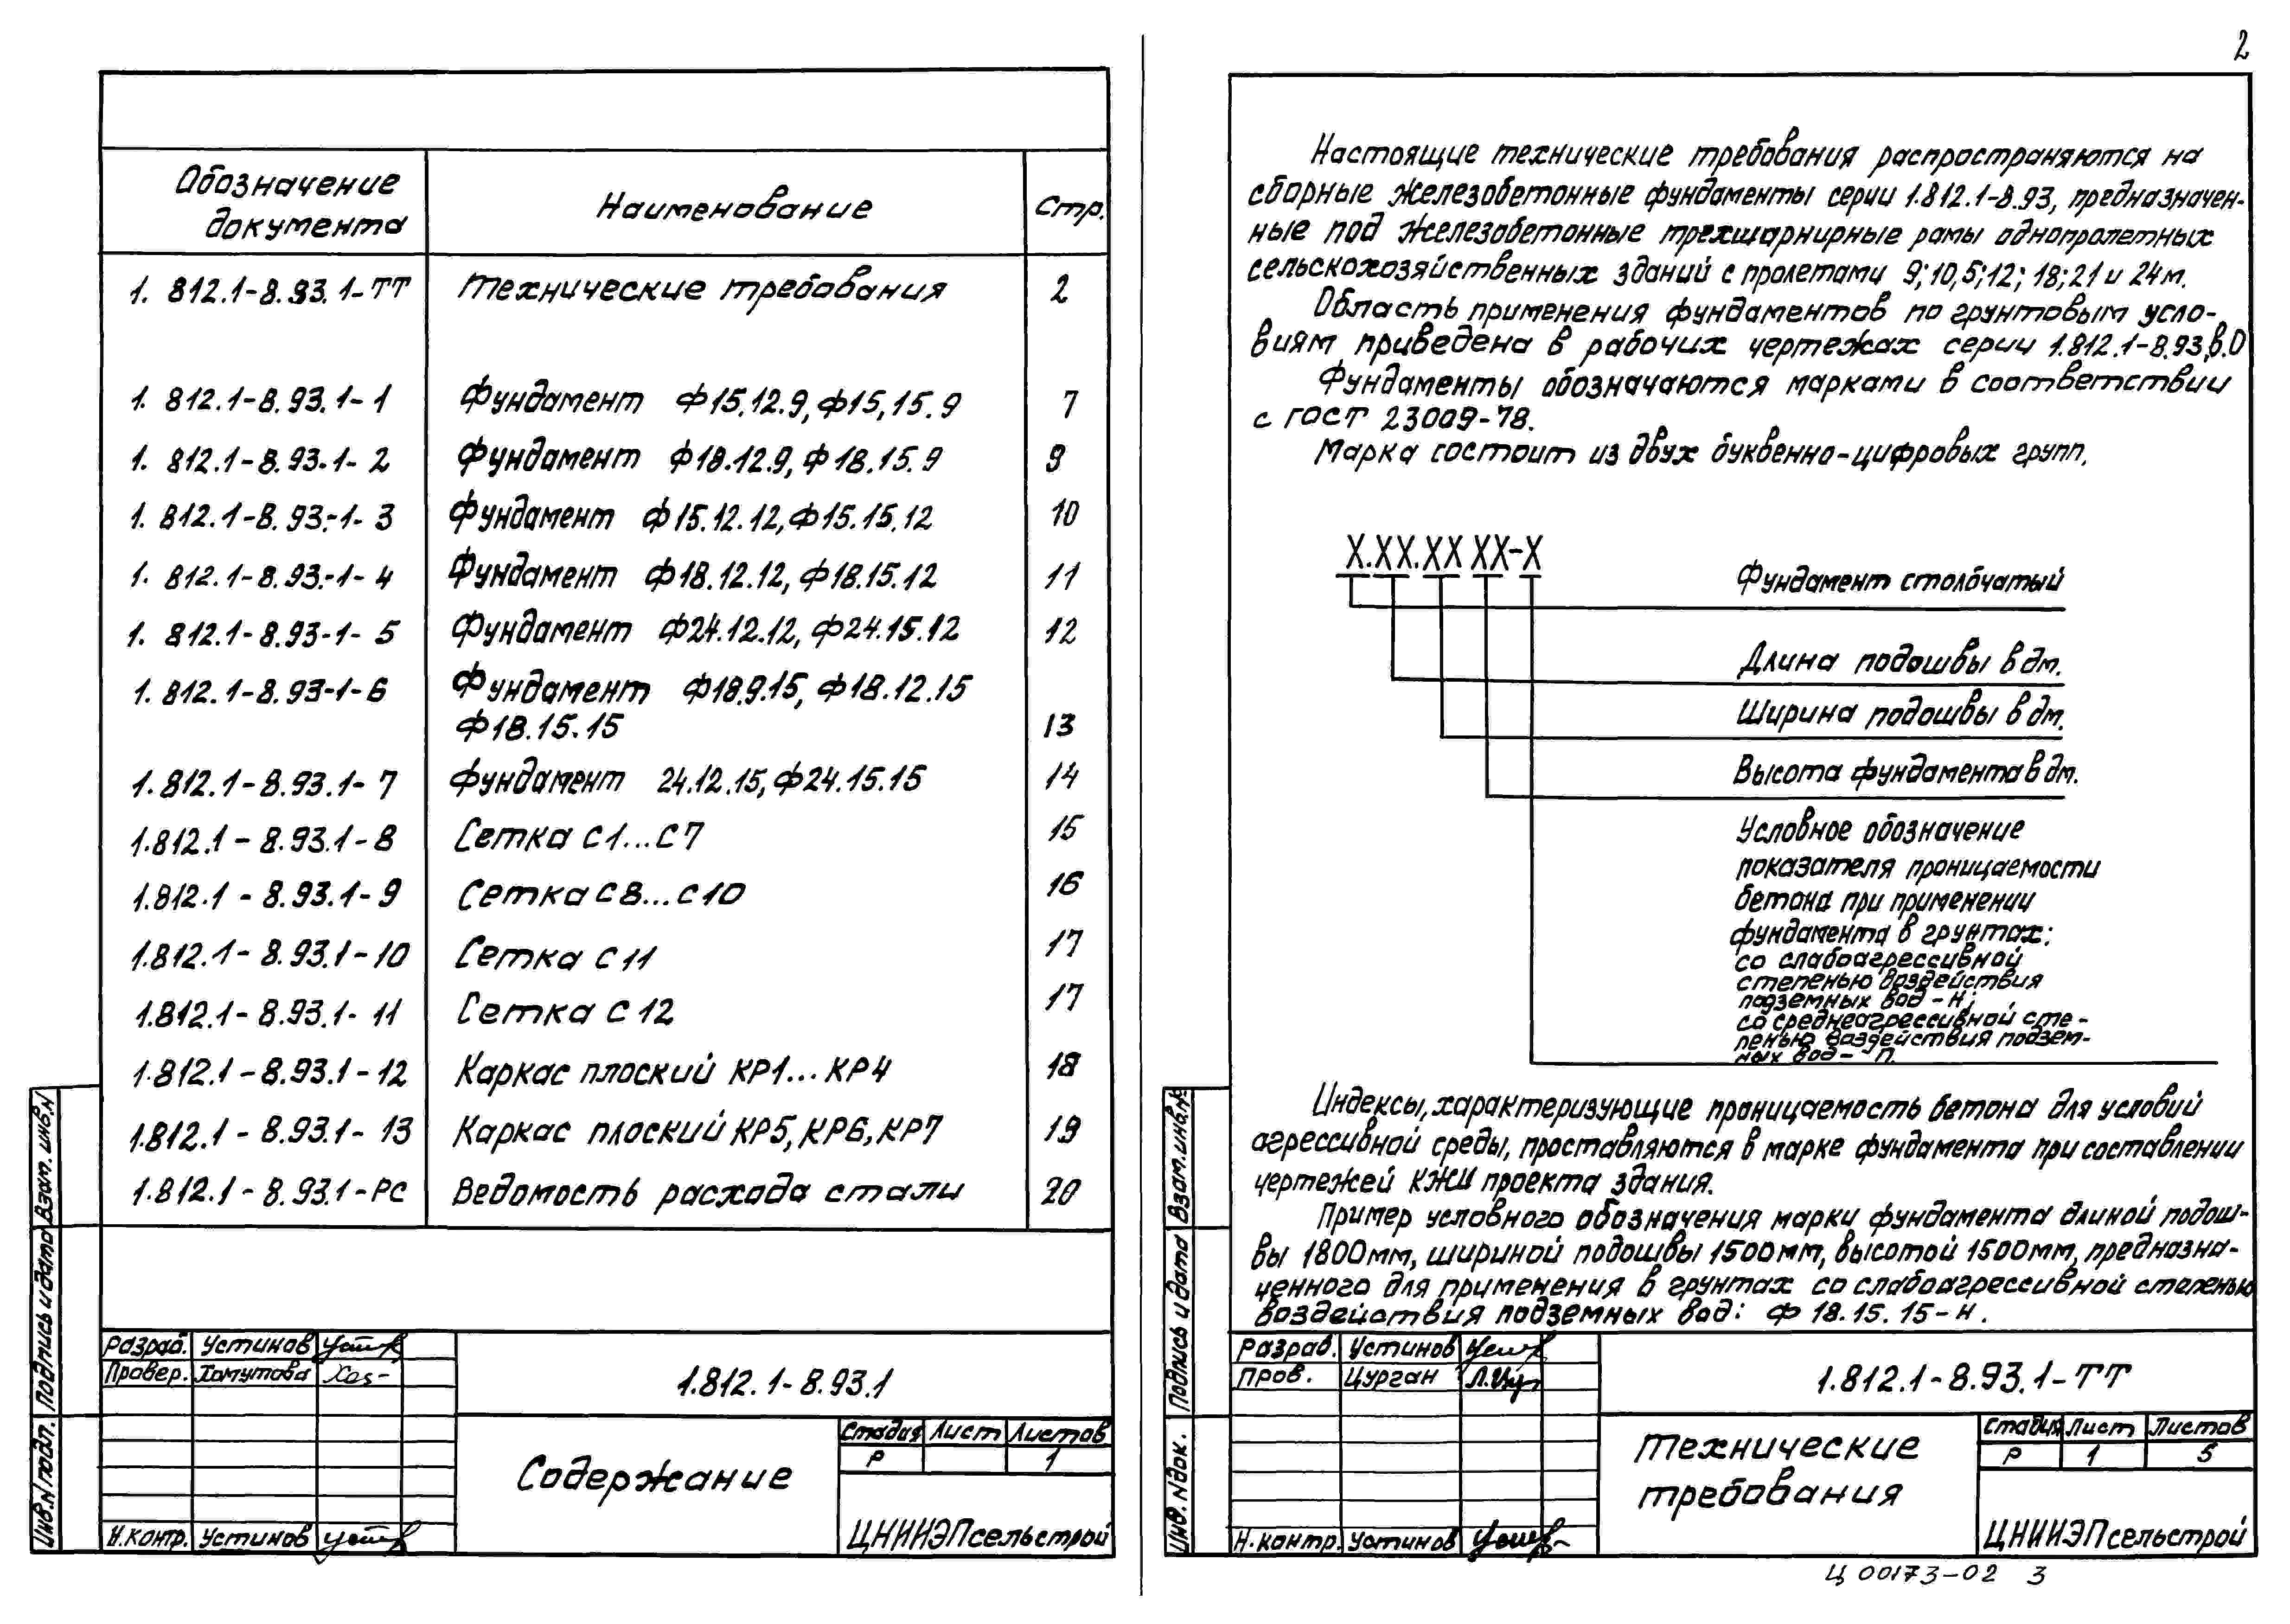 Обозначение документа Наименование Стр.
1. 812.1-8.93.1-ТТ Технические требования 2
1. 812.1-8.93.1-1 Фундамент Ф15.12.9, Ф15,15.9 7
1. 812.1-8.93.1-2 Фундамент Ф18.12.9, Ф18.15.9 9
1. 812.1-8.93.-1-3 Фундамент Ф15.12.12, Ф15.15.12 10
1. 812.1-8.93.-1-4 Фундамент Ф18.12.12, Ф18.15.12 11
1. 812.1-8.93-1-5 Фундамент Ф24.12.12, Ф24.15.12 12
1. 812.1-8.93-1-6 Фундамент Ф18.9.15, Ф18.12.15
Ф18.15.15 13
1.812.1-8.93.1-7 Фундамент 24.12.15, Ф24.15.15 14
1.812.1-8.93.1-8 Сетка С1...С7 15
1.812.1-8.93.1-9 Сетка С8...С10 16
1.812.1-8.93.1-10 Сетка С11 17
1.812.1-8.93.1-11 Сетка С12 17
1.812.1-8.93.1-12 Каркас плоский КР1...КР4 18
1.812.1-8.93.1-13 Каркас плоский КР5, КР6, КР7 19
1.812.1-8.93.1-РС Ведомость расхода стали 20
Взам. инв.N
Подпись и дата
Инв.N подл.
Разраб. Устинов
Провер. Хомутова
Н.контр. Устинов
1.812.1-8.93.1
Содержание
Стадия Лист Листов
Р 1
ЦНИИЭПсельстрой
2
Настоящие технические требования распространяются на
сборные железобетонные фундаменты серии 1.812.1-8.93, предназначен-
ные под железобетонные трехшарнирные рамы однопролетных
сельскохозяйственных зданий с пролетами 9; 10,5; 12; 18; 21 и 24м.
Область применения фундаментов по грунтовым усло-
виям приведена в рабочих чертежах серии 1.812.1-8.93,в.0
Фундаменты обозначаются марками в соответствии
с ГОСТ 23009-78.
Марка состоит из двух буквенно-цифровых групп.
Х.ХХ.ХХ ХХ-Х
Фундамент столбчатый
Длина подошвы в дм.
Ширина подошвы в дм.
Высота фундамента в дм.
Условное обозначение
показателя проницаемости
бетона при применении
фундамента в грунтах:
со слабоагрессивной
степенью воздействия
подземных вод - Н;
со среднеагрессивной сте-
пенью воздействия подзем-
ных вод - П.
Индексы, характеризующие проницаемость бетона для условий
агрессивной среды, проставляются в марке фундамента при составлении
чертежей КЖИ проекта здания.
Пример условного обозначения марки фундамента длиной подош-
вы 1800мм, шириной подошвы 1500мм, высотой 1500мм, предназна-
ченного для применения в грунтах со слабоагрессивной степенью
воздействия подземных вод: Ф 18.15.15-Н.
Взам.инв.№
Подпись и дата
Инв. N док.
Разраб. Устинов
Пров. Цурган
Н.контр. Устинов
1.812.1-8.93.1-ТТ
Технические
требования
Стадия Лист Листов
Р 1 5
ЦНИИЭПсельстрой
Ц 00173-02 3